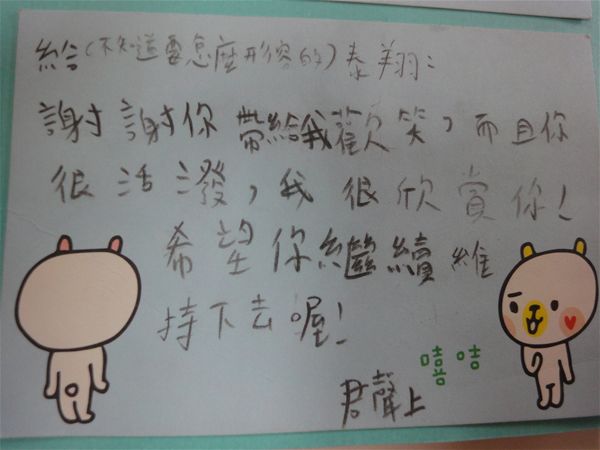 給(不知道要怎麼形容的)泰翔:
謝謝你帶給我歡笑,而且你
很活潑,我很欣賞你!
希望你繼續維
持下去喔!
嘻咭
君聲上